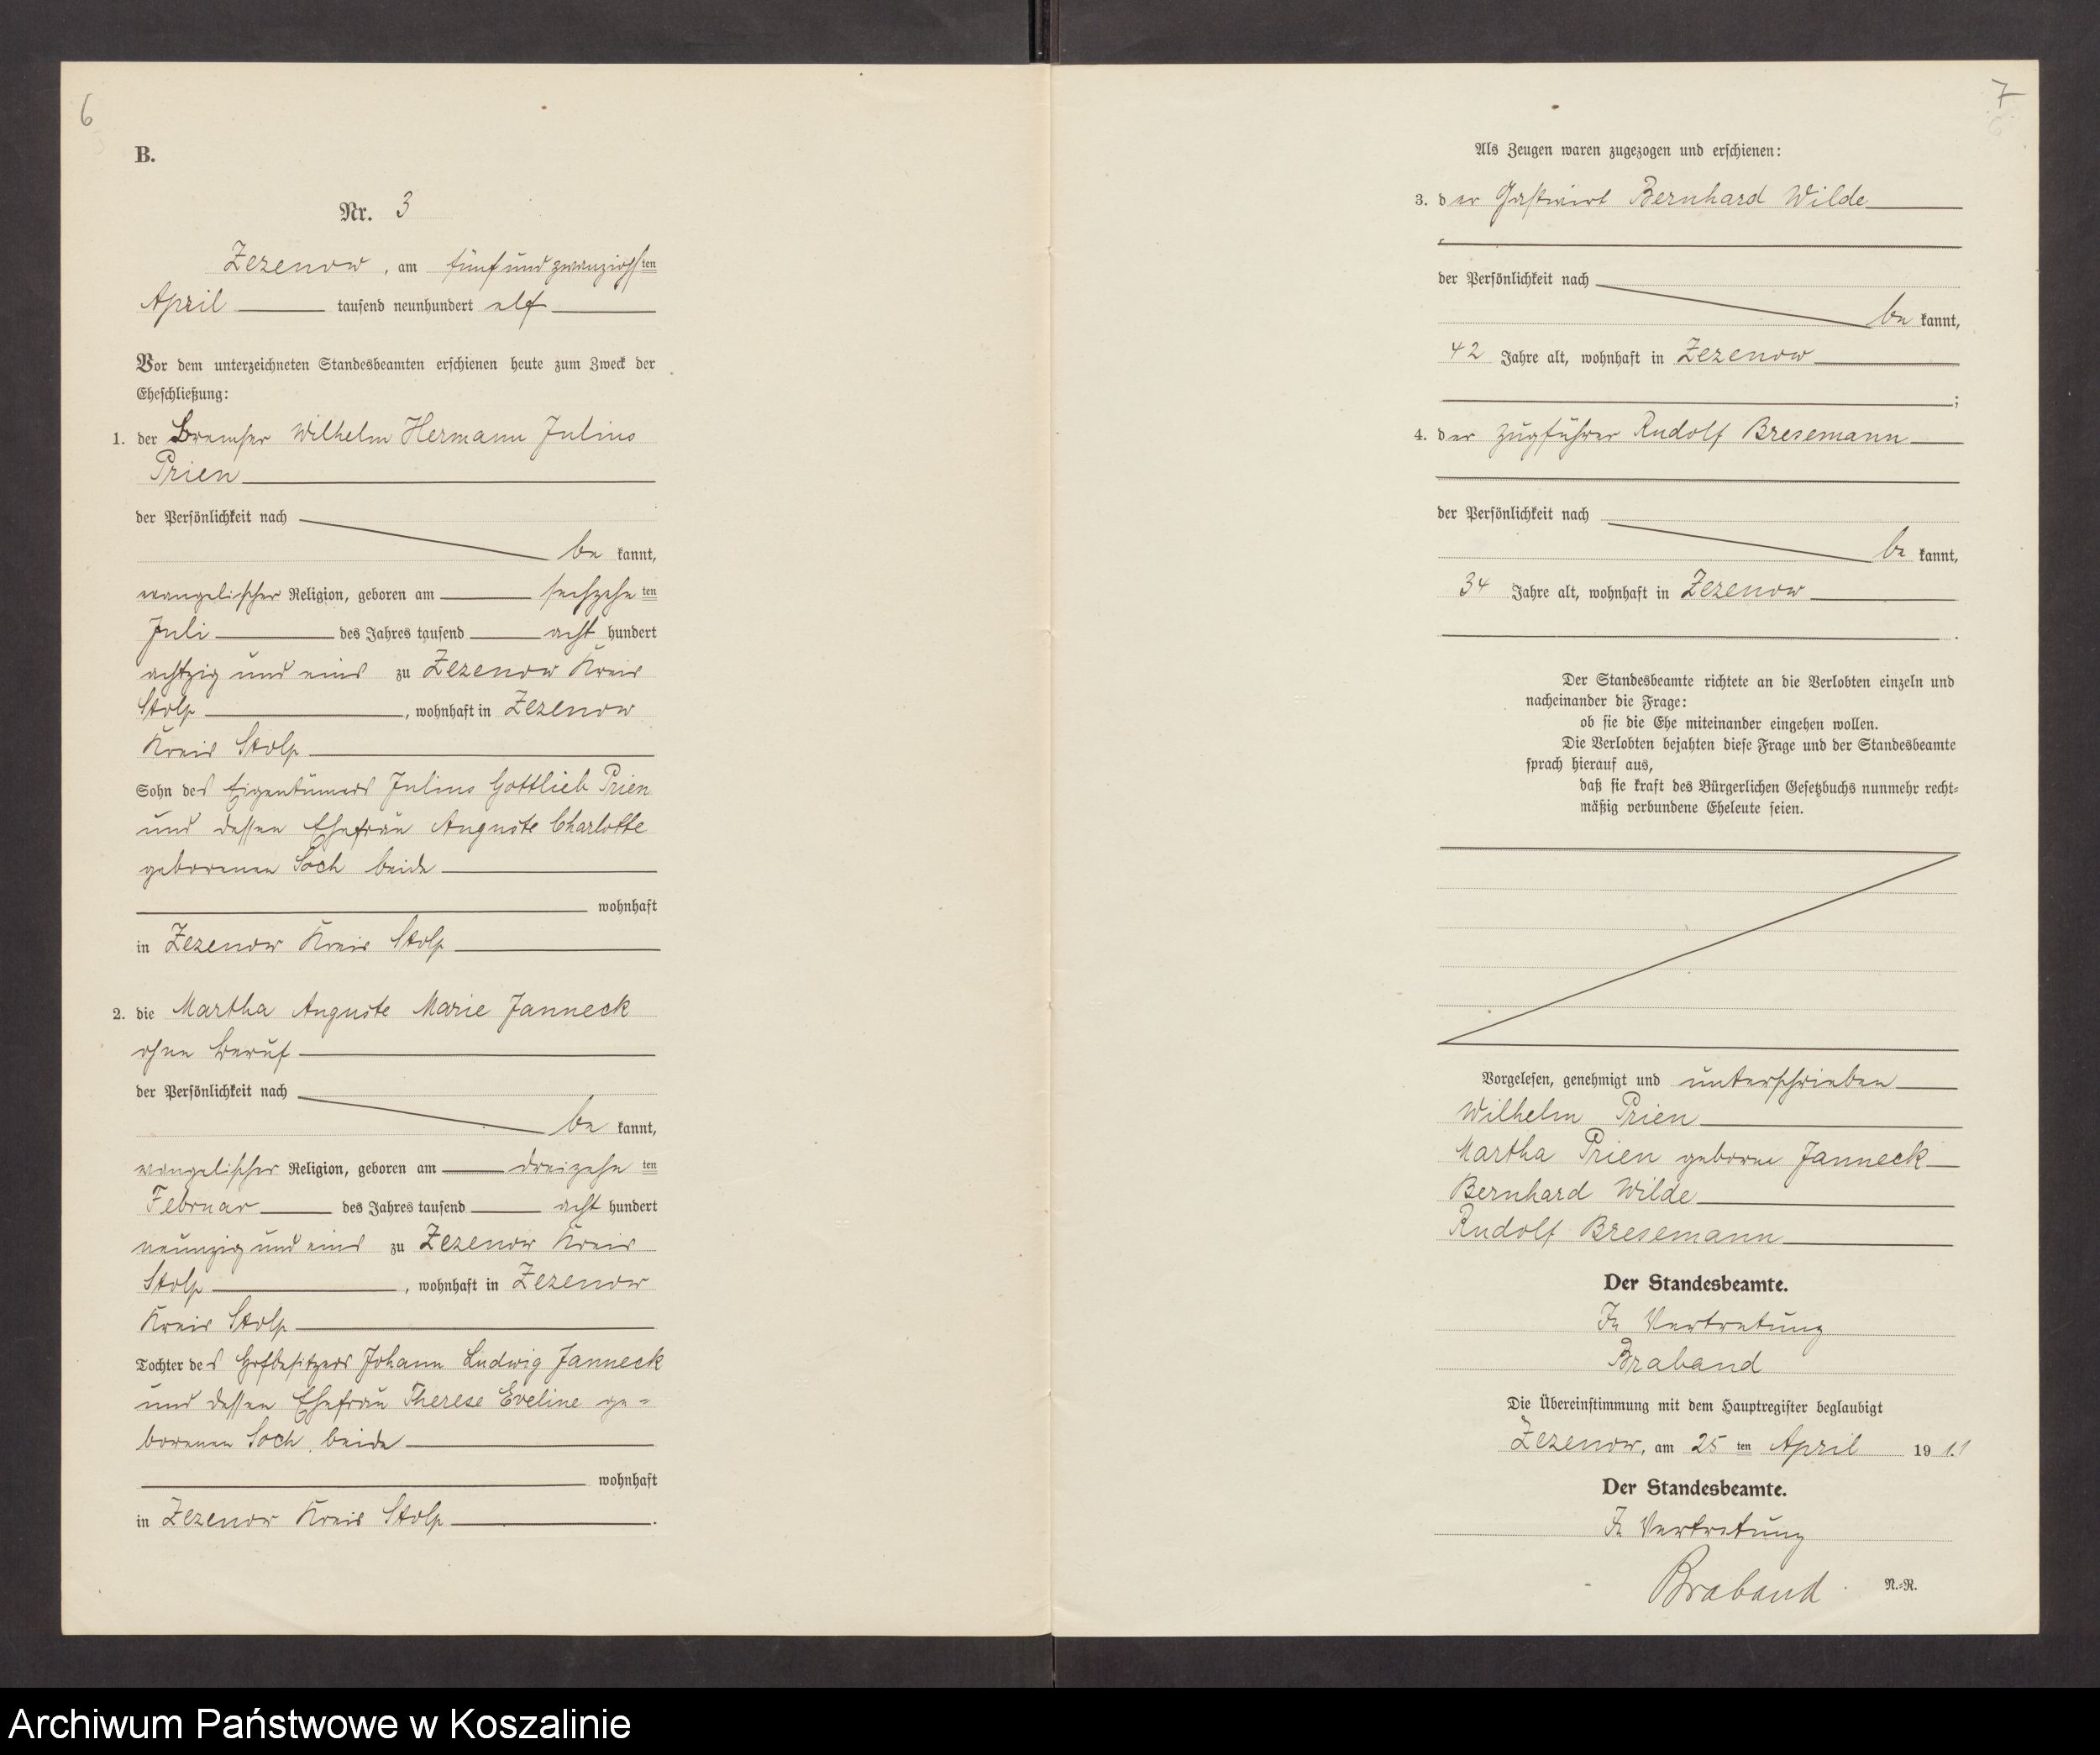 6
B.
Nr. 3
Zezenow, am fünfundzwanzigsten
April tausend neunhundert elf
Vor dem unterzeichneten Standesbeamten erschienen heute zum Zweck der
Eheschließung:
1. der Bremser Wilhelm Hermann Julius
Prien
der Persönlichkeit nach
be kannt,
evangelischer Religion, geboren am sechzehn ten
Juli des Jahres tausend acht hundert
achtzig und eins zu Zezenow Kreis
Stolp, wohnhaft in Zezenow
Kreis Stolp
Sohn des Eigentümers Julius Gottlieb Prien
und dessen Ehefrau Auguste Charlotte
geborenen Soch beide
wohnhaft
in Zezenow Kreis Stolp
2. die Martha Auguste Marie Janneck
ohne Beruf
der Persönlichkeit nach
be kannt,
evangelischer Religion, geboren am dreizehn ten
Februar des Jahres tausend acht hundert
neunzig und eins zu Zezenow Kreis
Stolp, wohnhaft in Zezenow
Kreis Stolp
Tochter des Hofbesitzers Johann Ludwig Janneck
und dessen Ehefrau Therese Eveline ge=
borenen Soch, beide
wohnhaft
in Zezenow Kreis Stolp.
7
Als Zeugen waren zugezogen und erschienen:
3. der Gastwirt Bernhard Wilde
der Persönlichkeit nach
be kannt,
42 Jahre alt, wohnhaft in Zezenow
;
4. der Zugführer Rudolf Bresemann
der Persönlichkeit nach
be kannt,
34 Jahre alt, wohnhaft in Zezenow
.
Der Standesbeamte richtete an die Verlobten einzeln und
nacheinander die Frage:
ob sie die Ehe miteinander eingehen wollen.
Die Verlobten bejahten diese Frage und der Standesbeamte
sprach hierauf aus,
daß sie kraft des Bürgerlichen Gesetzbuchs nunmehr recht=
mäßig verbundene Eheleute seien.
Vorgelesen, genehmigt und unterschrieben
Wilhelm Prien
Martha Prien geborene Janneck
Bernhard Wilde
Rudolf Bresemann
Der Standesbeamte.
In Vertretung
Braband
Die Übereinstimmung mit dem Hauptregister beglaubigt
Zezenow, am 25 ten April 19 11
Der Standesbeamte.
In Vertretung
Braband
N.=R.
Archiwum Państwowe w Koszalinie